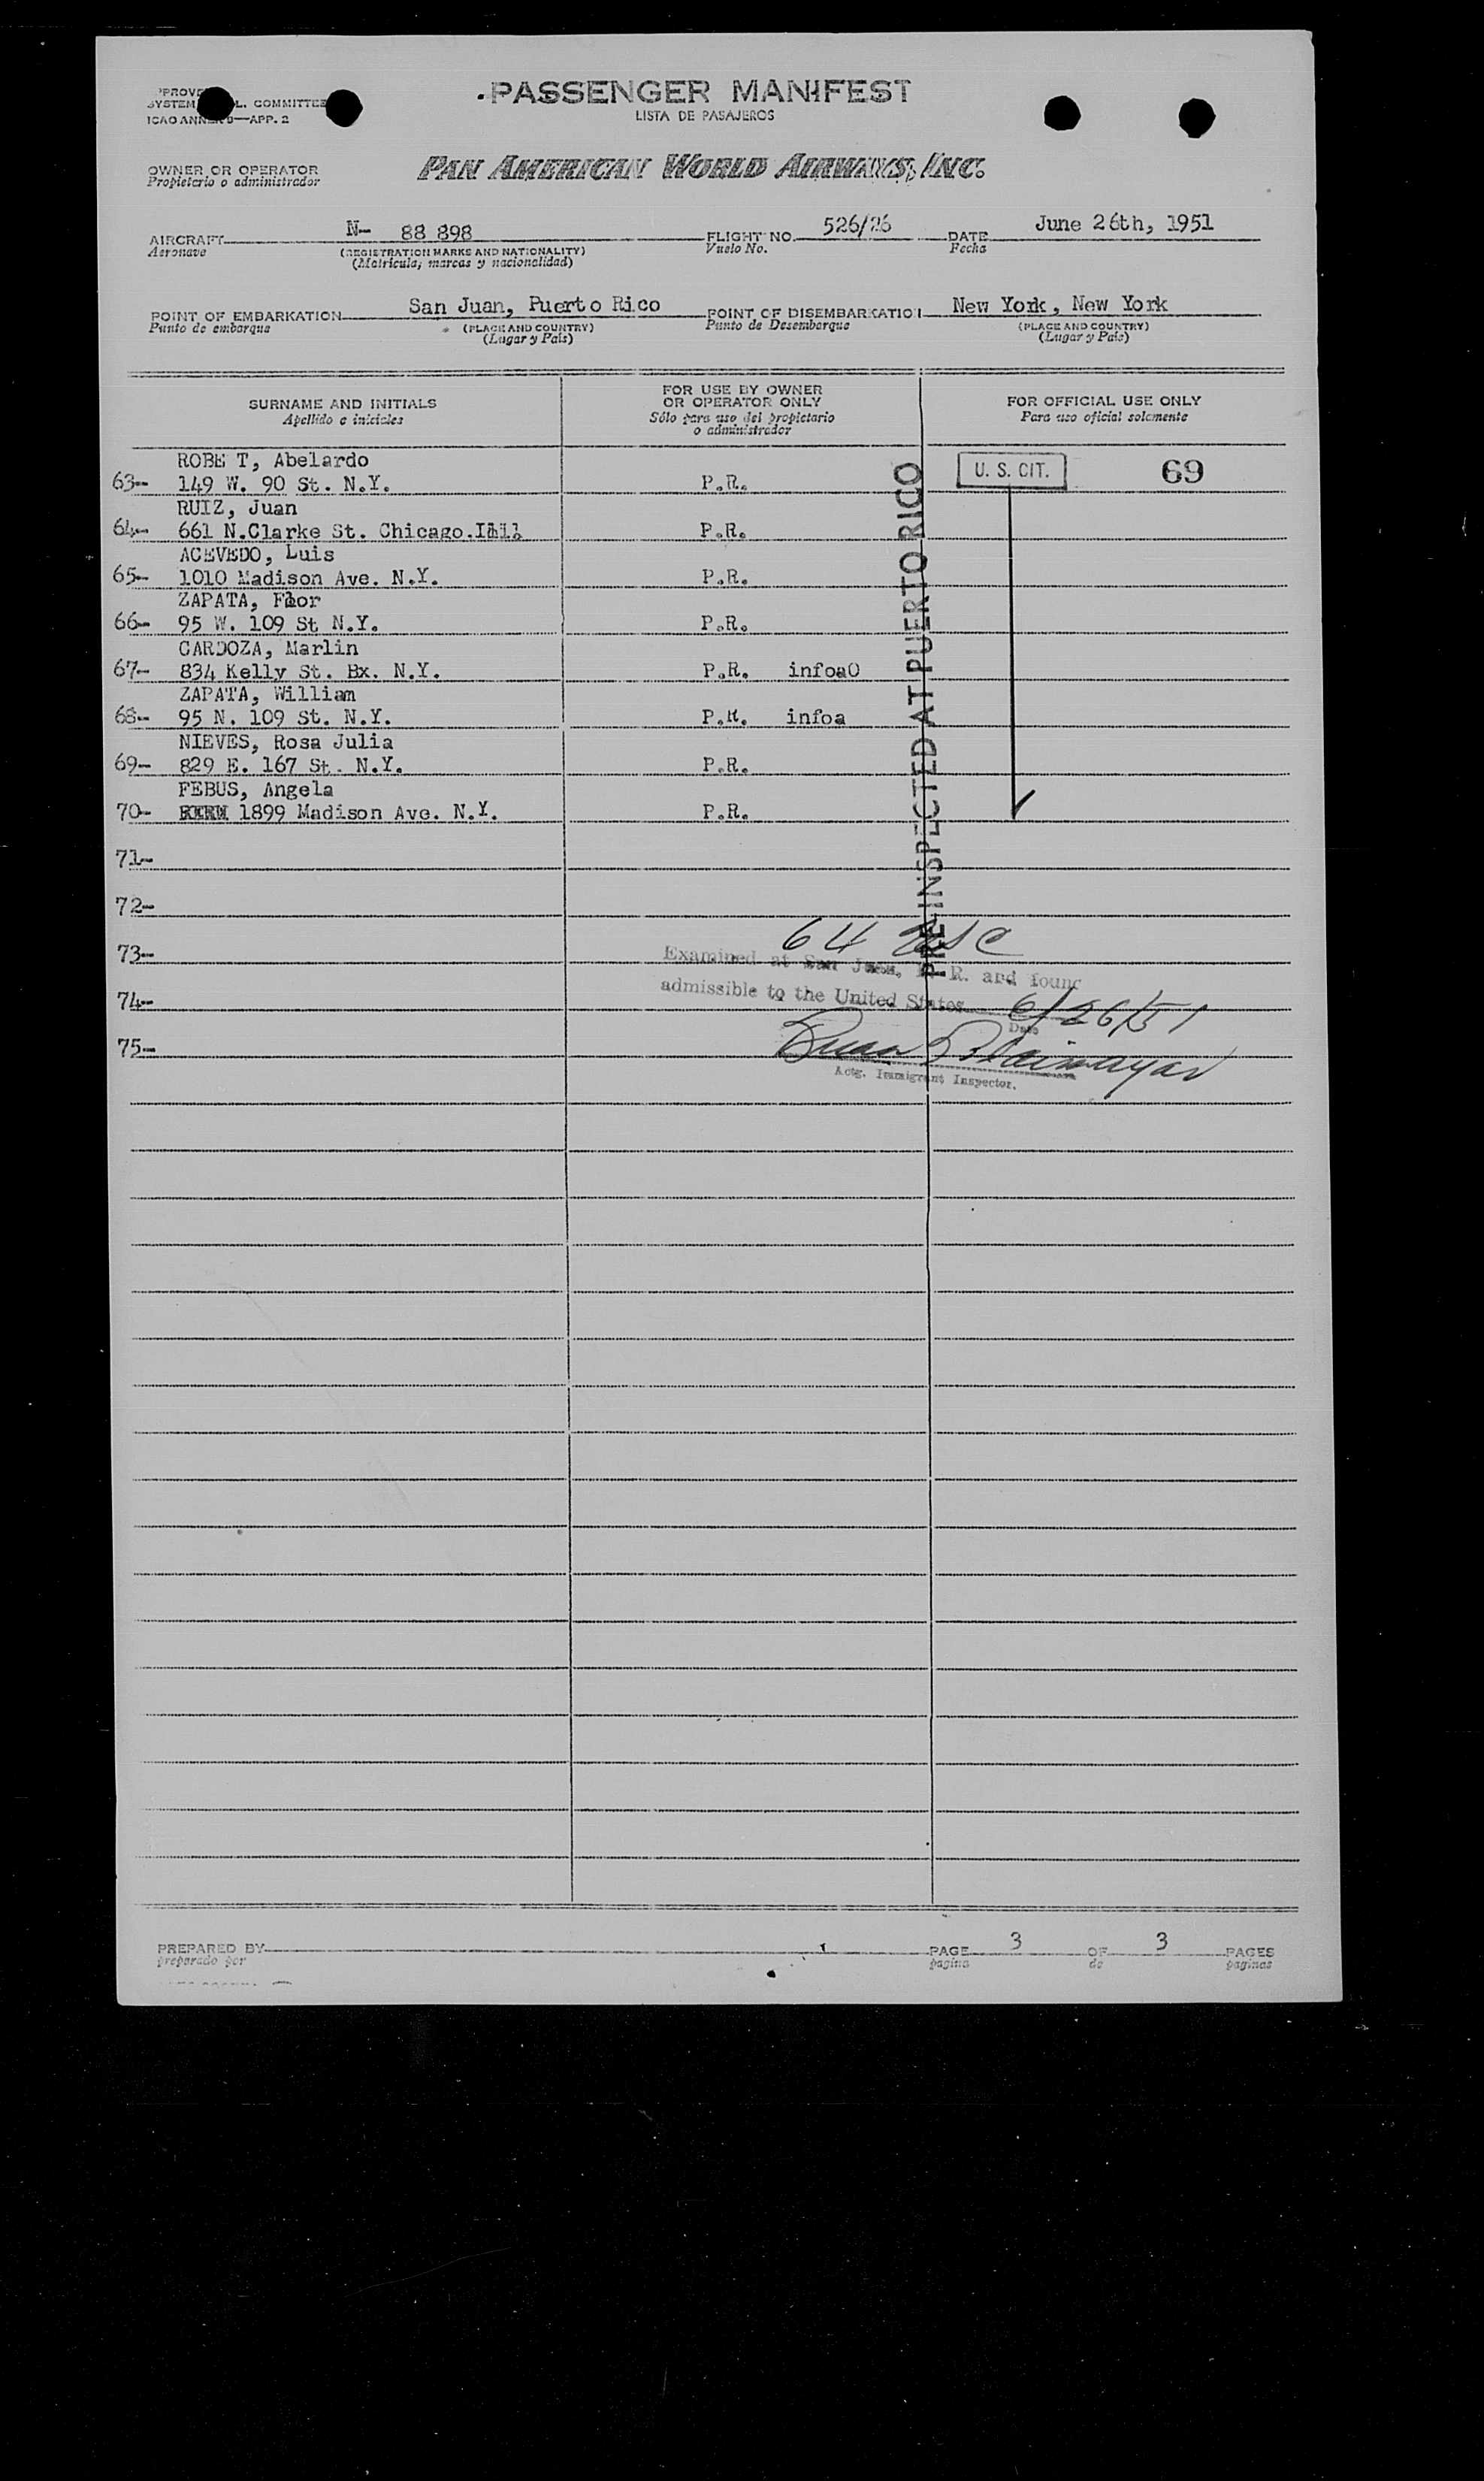 PASSENGER MANIFEST
LISTA DE PASAJEROS
L. COMMITTEE
ICAO ANNEX 9—APP. 2
OWNER OR OPERATOR
Propietario o administrador
PAN AMERICAN WORLD AIRWAYS, INC.
AIRCRAFT N- 88 898 FLIGHT NO. 526/26 DATE June 26th, 1951
Aeronave (REGISTRATION MARKS AND NATIONALITY) Vuelo No. Fecha
(Matricula, marcas y nacionalidad)
POINT OF EMBARKATION San Juan, Puerto Rico POINT OF DISEMBARKATION New York, New York
Punto de embarque (PLACE AND COUNTRY) Punto de Desembarque (PLACE AND COUNTRY)
(Lugar y País) (Lugar y País)
SURNAME AND INITIALS
Apellido e iniciales
FOR USE BY OWNER
OR OPERATOR ONLY
Sólo para uso del propietario
o administrador
FOR OFFICIAL USE ONLY
Para uso oficial solamente
ROBE T, Abelardo
63-- 149 W. 90 St. N.Y. P.R. U. S. CIT. 69
RUIZ, Juan
64-- 661 N.Clarke St. Chicago. P.R.
ACEVEDO, Luis
65-- 1010 Madison Ave. N.Y. P.R.
ZAPATA, Flor
66-- 95 W. 109 St N.Y. P.R.
CARDOZA, Marlin
67-- 834 Kelly St. Bx. N.Y. P.R. infoaO
ZAPATA, William
68-- 95 N. 109 St. N.Y. P.R. infoa
NIEVES, Rosa Julia
69-- 829 E. 167 St. N.Y. P.R.
FEBUS, Angela
70- 1899 Madison Ave. N.Y. P.R.
PRE-INSPECTED AT PUERTO RICO
71--
72--
73--
74--
75--
64 USC
Examined at San Juan, P. R. and found
admissible to the United States 6/26/51
Date
Actg. Immigrant Inspector.
PREPARED BY PAGE 3 OF 3 PAGES
preparado por pagina de paginas